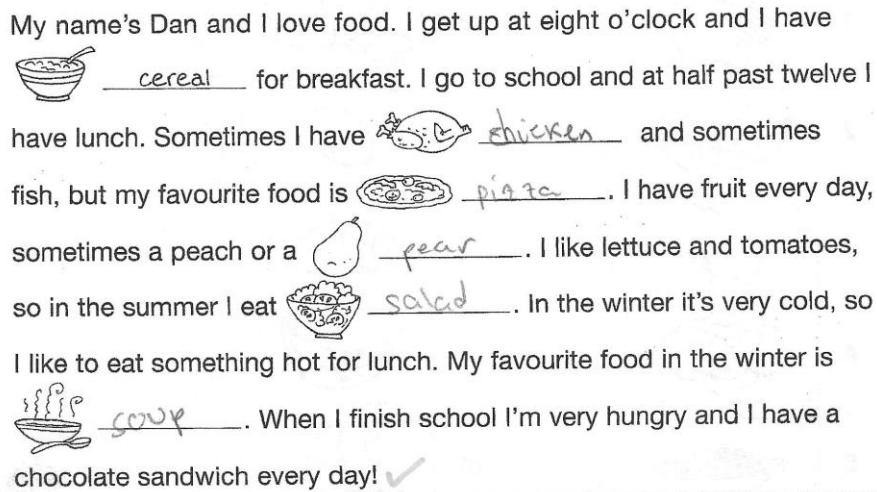 My name's Dan and I love food. I get up at eight o'clock and I have
cereal for breakfast. I go to school and at half past twelve I
have lunch. Sometimes I have chicken and sometimes
fish, but my favourite food is pizza. I have fruit every day,
sometimes a peach or a pear. I like lettuce and tomatoes,
so in the summer I eat salad. In the winter it's very cold, so
I like to eat something hot for lunch. My favourite food in the winter is
soup. When I finish school I'm very hungry and I have a
chocolate sandwich every day!